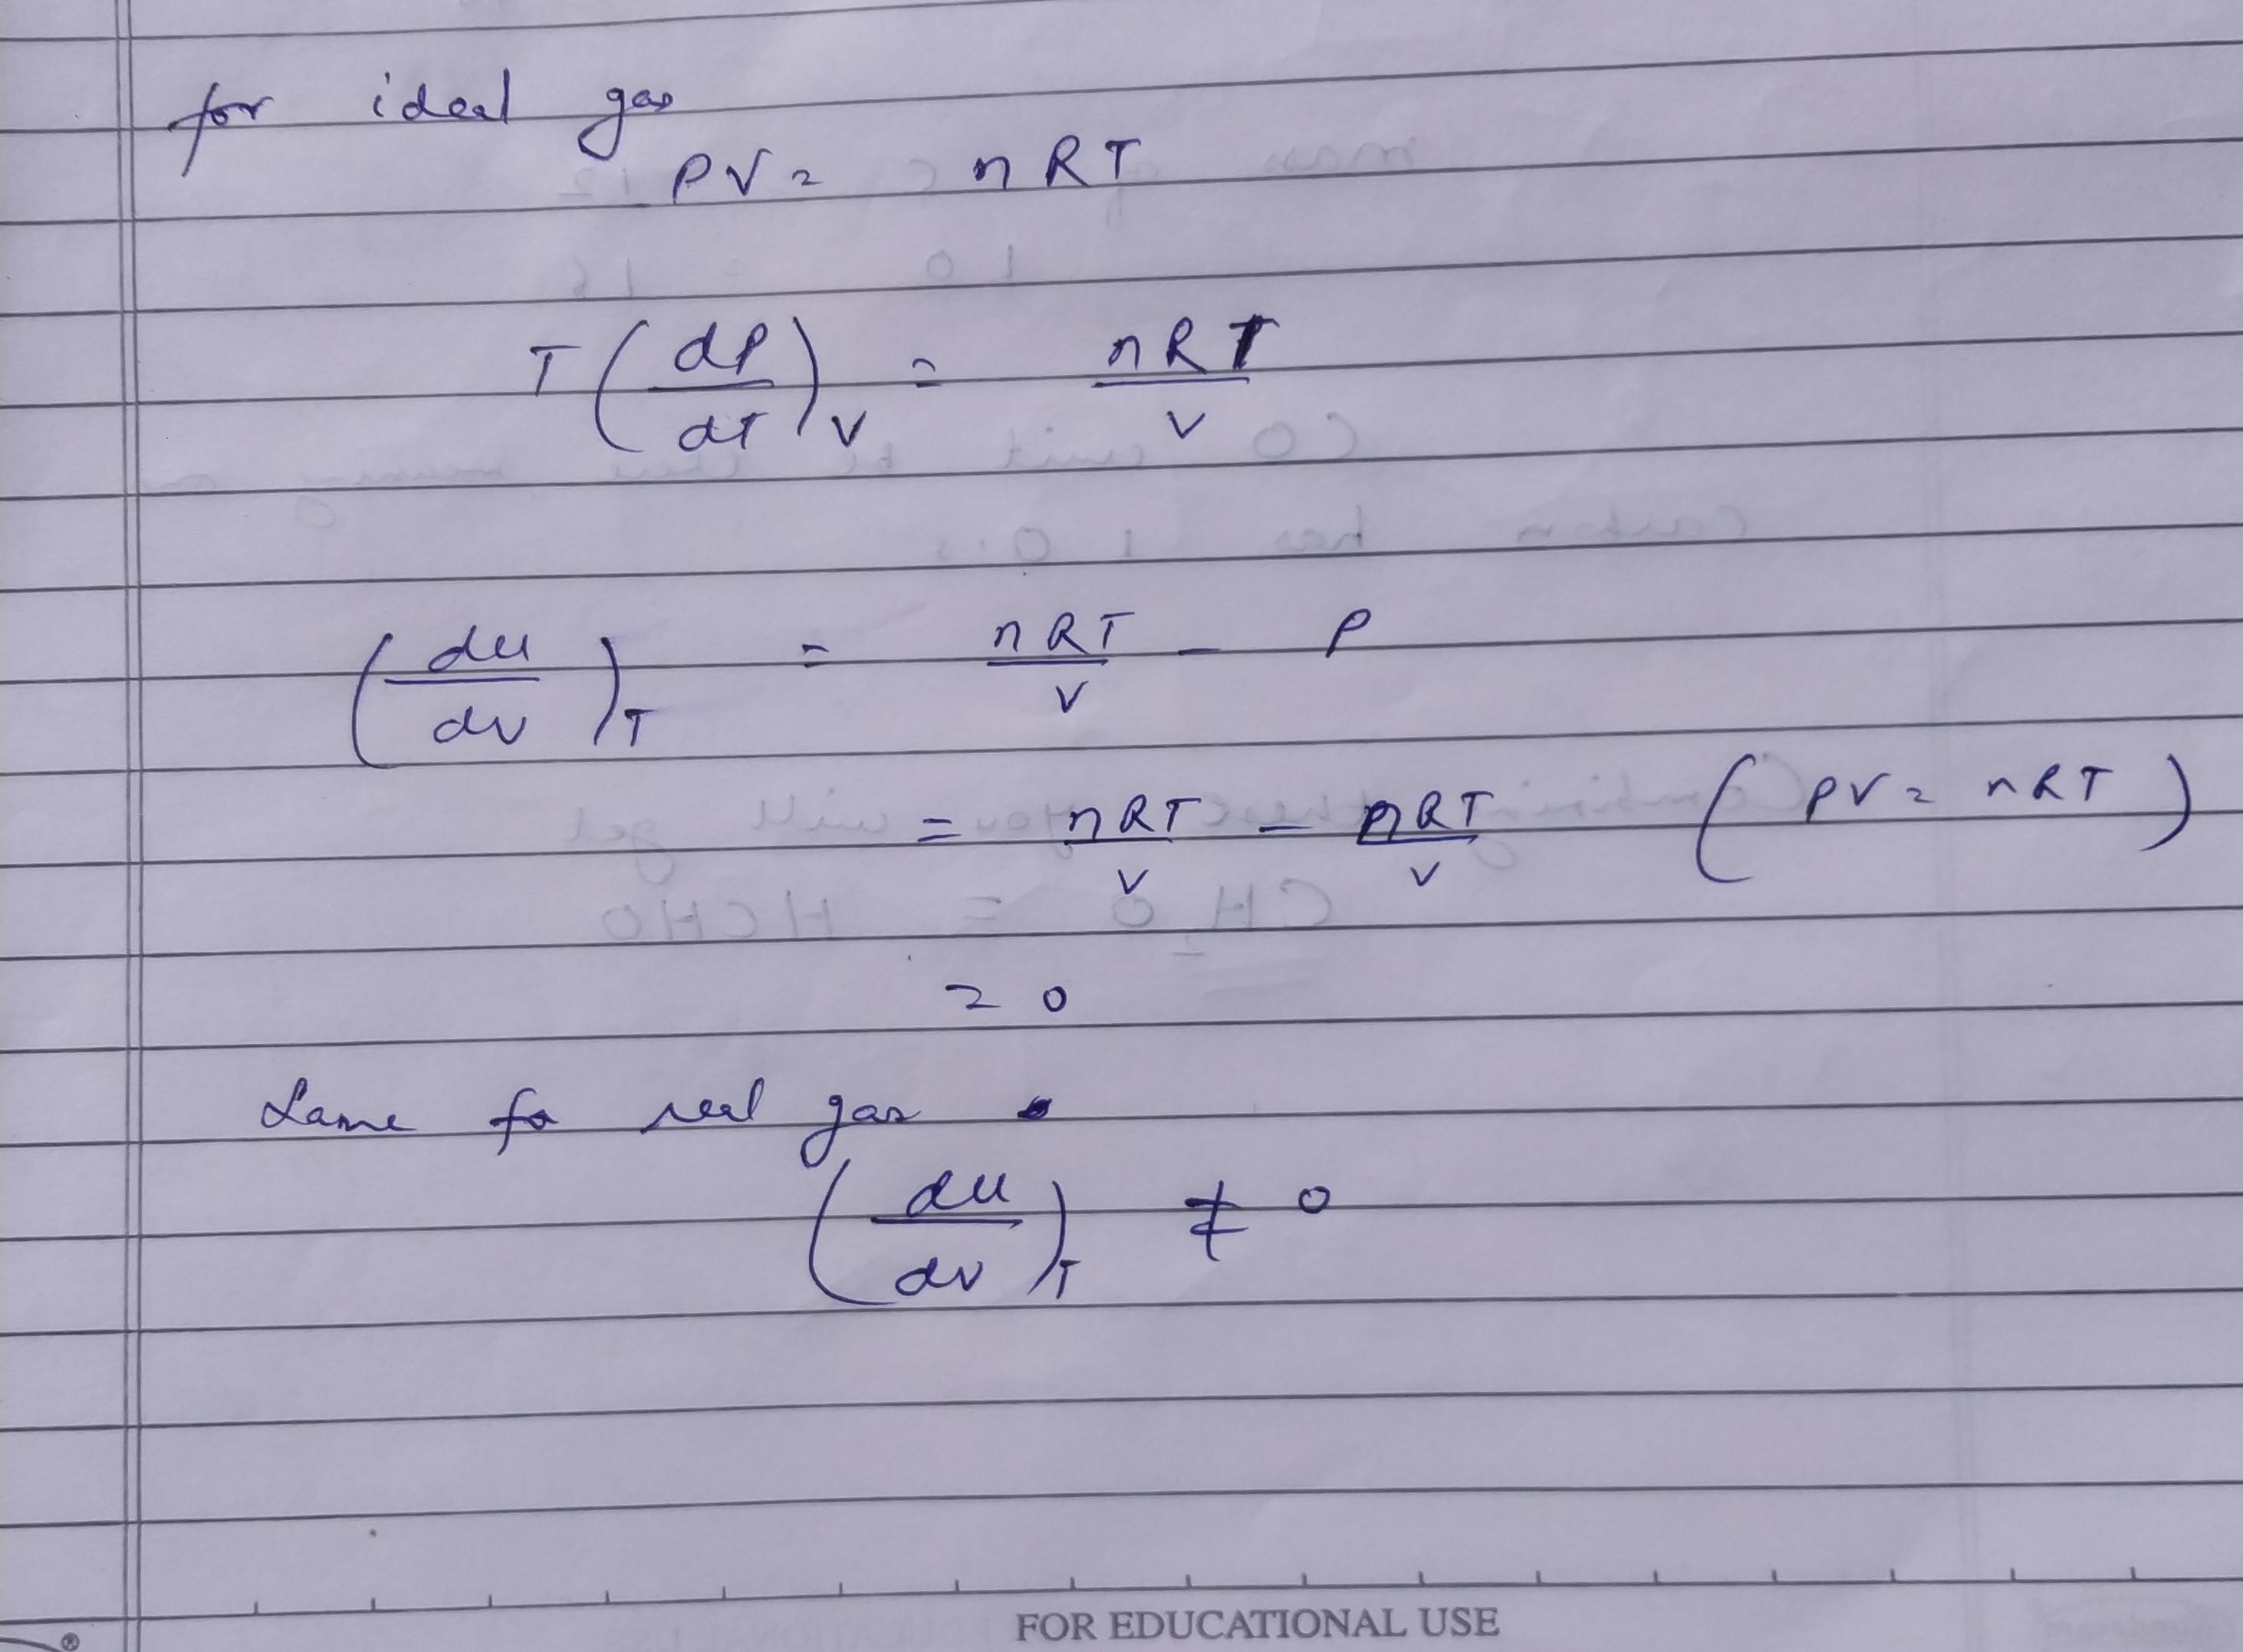 for ideal gas
PV = nRT
T(dP/dT)V = nRT/V
(du/dv)T = nRT/V - P
= nRT/V - nRT/V (PV = nRT)
= 0
Same fo real gas
(du/dv)T ≠ 0
FOR EDUCATIONAL USE